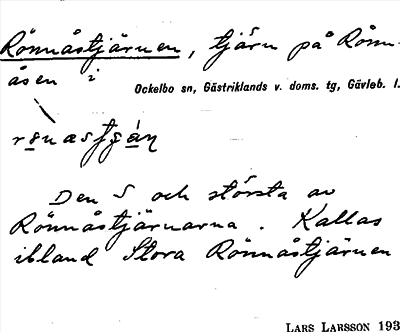 Rönnåstjärnen, tjärn på Rönn-
åsen i
Ockelbo sn, Gästriklands v. doms. tg, Gävleb. l.
Den S och största av
Rönnåstjärnarna. Kallas
ibland Stora Rönnåstjärnen
LARS LARSSON 193